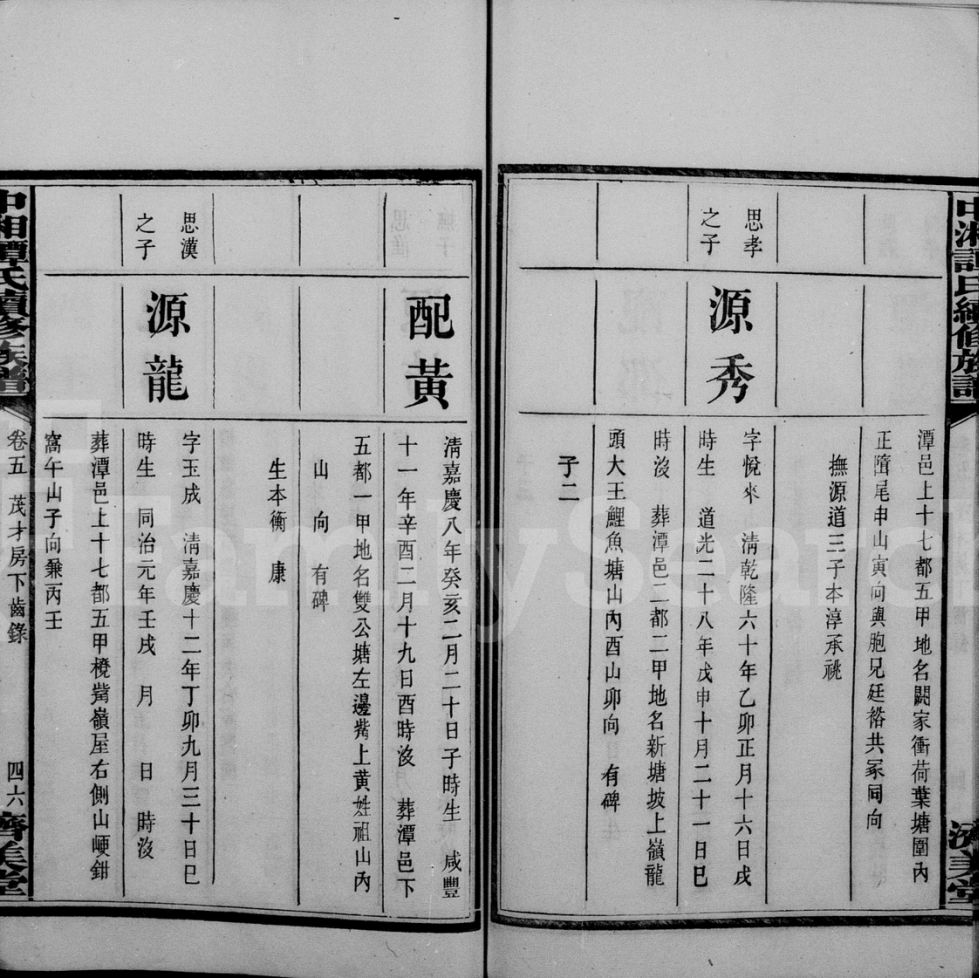 潭邑上十七都五甲地名闕家衝荷葉塘圍內
正隋尾申山寅向與胞兄廷裕共冢同向
撫源道三子本淳承祧
思孝
之子
源秀
字悅來 清乾隆六十年乙卯正月十六日戌
時生 道光二十八年戊申十月二十一日巳
時沒 葬潭邑二都二甲地名新塘坡上嶺龍
頭大王鯉魚塘山內酉山卯向 有碑
子二
濟美堂
配黃
清嘉慶八年癸亥二月二十日子時生 咸豐
十一年辛酉二月十九日酉時沒 葬潭邑下
五都一甲地名雙公塘左邊嘴上黃姓祖山內
山 向 有碑
生本衡 康
思漢
之子
源龍
字玉成 清嘉慶十二年丁卯九月三十日巳
時生 同治元年壬戌 月 日 時沒
葬潭邑上十七都五甲櫈嘴嶺屋右側山崾鉗
窩午山子向兼丙壬
中湘譚氏續修族譜
卷五 茂才房下齒錄 四六
濟美堂
FamilySearch